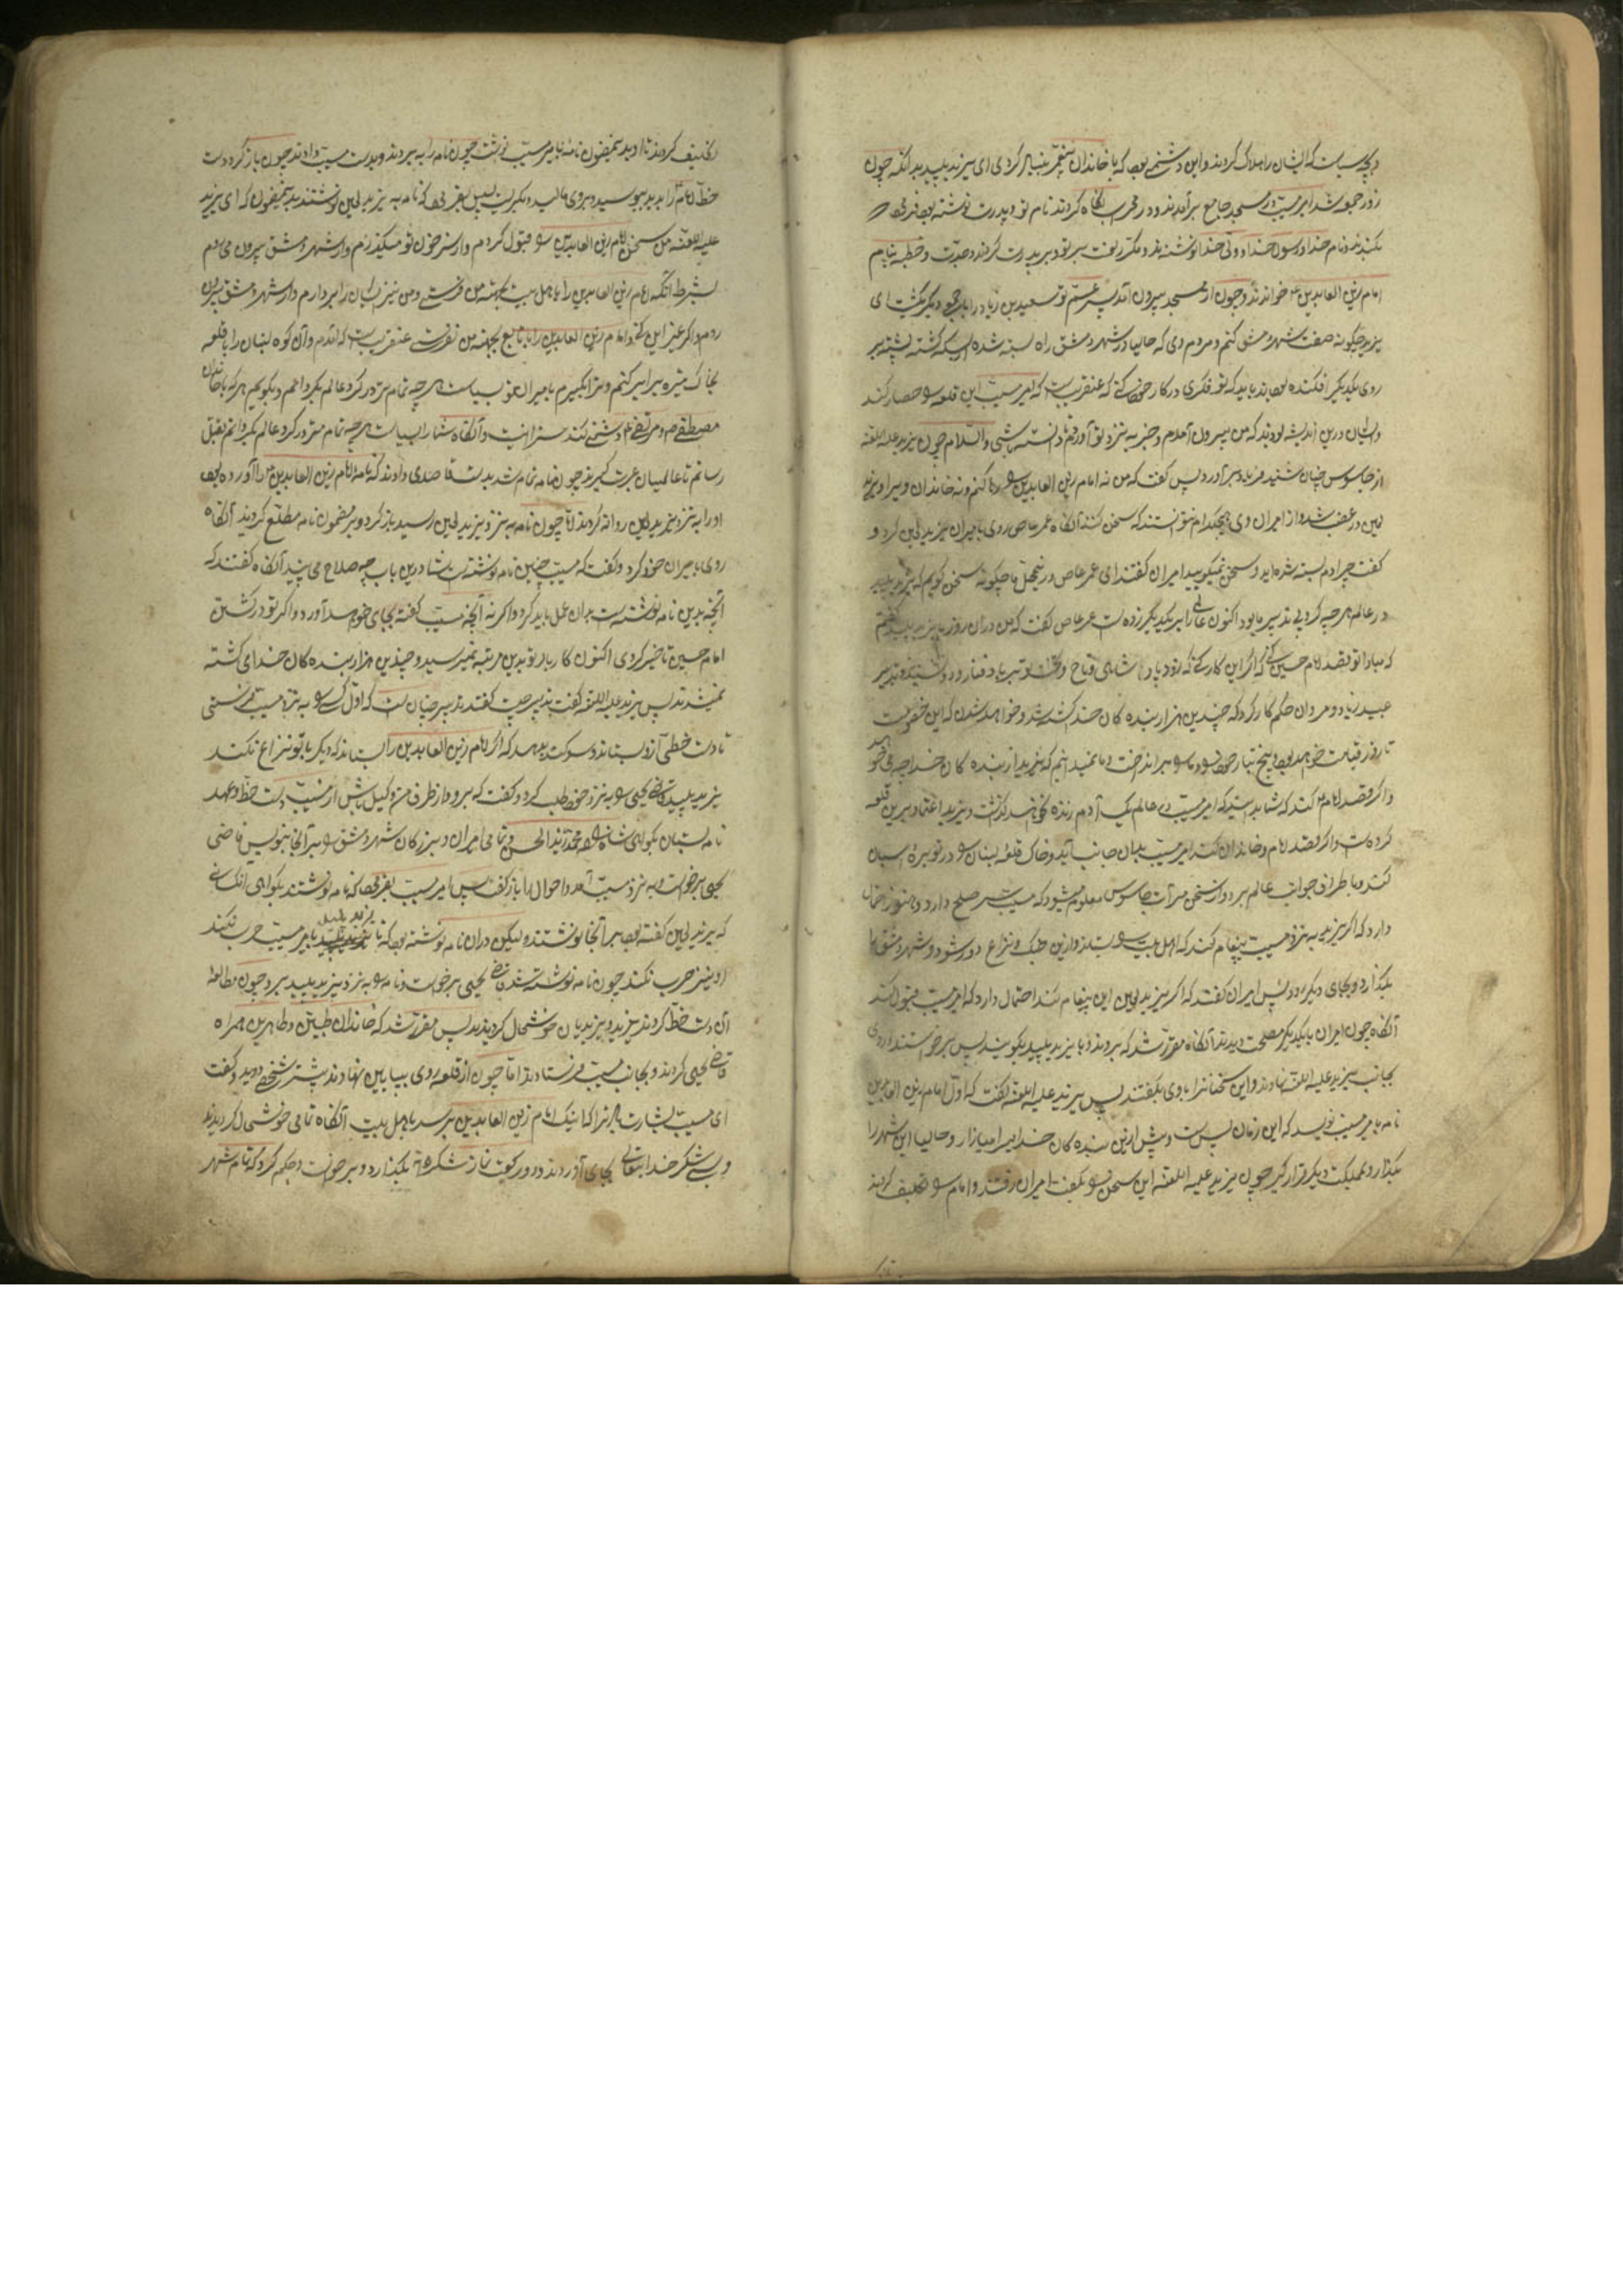 دیکچه سیاست که ایشان را هلاک کردند و این دشمنی بود که با خاندان پیغمبر بنیاد کردی ای یزید پلید بدانکه چون
روز جمعه شد امیر مسیب در مسجد جامع برآمدند و در محراب نگاه کردند نام تو و پدرت نوشته بود فرمود
بکندند و نام خدا و رسول خدا و ولی خدا نوشتند و مکرر لعنت بر تو و بر پدرت کردند و خطبه بنام
امام زین العابدین خواندند و چون از مسجد بیرون آمد پسر عم تو سعید بن زیاد را پاره پاره
یزید چگونه صفت شهر دمشق کنم و مردم وی که حالیا در شهر دمشق راه بسته شده از بسکه کشته پشته بر
روی یکدیگر افکنده بود باید که تو فکری در کار خود کنی که عنقریبست که امیر مسیب این قلعه حصار کند
و ایشان درین اندیشه بودند که من بیرون آمدم و خبر به نزد تو آوردم تا دانسته باشی والسلام چون یزید علیه اللعنه
از جاسوس چنان شنید فریاد برآورد پس گفت که من نه امام زین العابدین را رها کنم و نه خاندان ویرا و یزید
لعین در غضب شد و از امیران وی هیچکدام نتوانستند که سخن کنند آنگاه عمر عاص روی با میران یزید لعین کرد و
گفت چرا دم بسته شده اید و سخن نمیکویید امیران گفتند ای عمر عاص در محل ما چگونه سخن کویم که یزید پلید
در عالم هر چه کرد بی تدبیر ما بود اکنون عالمی را بر یکدیگر زده است عمر عاص گفت که من در آن روز با یزید پلید گفتم
که مبادا تو قصد امام حسین کنی که اگر این کار کنی که زود باد شاهی و تاج و تخت تو بر باد فنا رود نشنید و بتدبیر
عبید زیاد و مروان حکم کار کرد که چندین هزار بنده کان خدا کشته شد و خواهد شدن که این خصومت
تا روز قیامت خواهد بود و بیخ تبار خود و ما را برانداخت و ما نمیدانیم که یزید از بنده کان خدا چه میخواهد
و اگر قصد امام کند که شما بدانید که امیر مسیب در عالم یک آدم زنده نخواهد گذاشت و یزید اعتماد برین قلعه
کرده است و اگر قصد امام و خاندان کند امیر مسیب بدان جانب آید و خاک قلعه لبنان را در توبره اسبان
کند و باطراف جوانب عالم برد و از سخن جاسوس معلوم میشود که مسیب سر صلح دارد و هنوز احتمال
دارد که اگر یزید به نزد مسیب پیغام کند که اهل بیت را بستاند و ازین جنگ و نزاع دور شود و شهر دمشق را
بگذارد و بجای دیگر رود پس امیران گفتند که اگر یزید لعین این پیغام کند احتمال دارد که امیر مسیب قبول کند
آنگاه چون امیران با یکدیگر مصلحت دیدند آنگاه مقرر شد که بروند و با یزید پلید بگویند پس برخواستند و روی
بجانب یزید علیه اللعنه نهادند و این سخنانرا با وی بگفتند پس یزید علیه اللعنه گفت که اول امام زین العابدین
نامه با میر مسیب نویسد که این زمان بس است و بیش ازین بنده کان خدا را میازار و حالیا این شهر را
بگذار و مملکت دیگر قرار گیر چون یزید علیه اللعنه این سخن را بگفت امیران رفتند و امام را تکلیف کردند
تکلیف کردند تا او بدین مضمون نامه با میر مسیب نوشت چون نامه را به بردند و بدست مسیب دادند چون باز کرد دست
خط امام را بدید ببوسید و بر وی مالید و بگریست پس بفرمود که نامه به یزید لعین نوشتند بدین مضمون که ای یزید
علیه اللعنه من سخن امام زین العابدین را قبول کردم و از سر خون تو میگذرم و از شهر دمشق بیرون می روم
بشرط آنکه امام زین العابدین را با اهل بیت بجهة من فرستی و من نیز ایشان را بردارم و از شهر دمشق بیرون
روم و اگر غیر این کنی و امام زین العابدین را با توابع بجهة من نفرستی عنقریبست که آمدم و آن کوه لبنان را با قلعه
بخاک تیره برابر کنم و ترا بگیرم با میران تو بسیاست هر چه تمام تر در گرد عالم بگردانم و بگویم هر که با خاندان
مصطفی و مرتضی دشمنی کند سزا اینست و آنگاه شما را بسیاست هر چه تمام تر در گرد عالم بگردانم بقتل
رسانم تا عالمیان عبرت گیرند چون نامه تمام شد بدست قاصدی دادند که نامهٔ امام زین العابدین را آورده بود
او را به نزد یزید لعین روانه کردند اما چون نامه به نزد یزید لعین رسید باز کرد و بر مضمون نامه مطلع گردید آنگاه
روی با میران خود کرد و گفت که مسیب چنین نامه نوشته است شما درین باب چه صلاح می بینید آنگاه گفتند که
آنچه بدین نامه نوشته است بدان عمل باید کرد و اگر نه آنچه مسیب گفته بجای خواهد آورد و اگر تو در کشتن
امام حسین تاخیر کردی اکنون کار باز تو بدین مرتبه نمیرسید و چندین هزار بنده کان خدای کشته
نمیشدند پس یزید علیه اللعنه گفت تدبیر چیست گفتند تدبیر چنان است که اول کسی را به نزد مسیب فرستی
تا دست خطی از او بستاند و سوگند بدهد که اگر امام زین العابدین را بستاند که دیگر با تو نزاع نکند
یزید پلید قاضی یحیی را به نزد خود طلب کرد و گفت که برو و از طرف من وکیل باش از مسیب دست خط و عهد
نامه بستان بگواهی شاه محمد زید الحسن و تمامی امیران و بزرگان شهر دمشق را بر آنجا بنویس قاضی
یحیی برخواست و به نزد مسیب آمد و احوال را باز گفت پس امیر مسیب بفرمود که نامه نوشتند بگواهی آنکسانی
که یزید لعین گفته بود بر آنجا نوشتند و لیکن در آن نامه نوشته بود که تا یزید پلید با میر مسیب حرب نکند
او نیز حرب نکند چون نامه نوشته شد قاضی یحیی برخواست و نامه را به نزد یزید پلید برد چون مطالعه
آن دست خط کردند یزید و یزیدیان خوشحال گردیدند پس مقرر شد که خاندان طیبین و طاهرین همراه
قاضی یحیی کردند و بجانب مسیب فرستادند اما چون از قلعه روی به پایین نهادند پیشتر شخصی دوید و گفت
ای مسیب بشارت باد ترا که اینک امام زین العابدین میرسد با اهل بیت آنگاه تمامی خوشحال گردیدند
و بسی شکر خدایتعالی بجای آوردند و دو رکعت نماز شکرانه بگذارد و برخواست و حکم کرد که تمام شهر